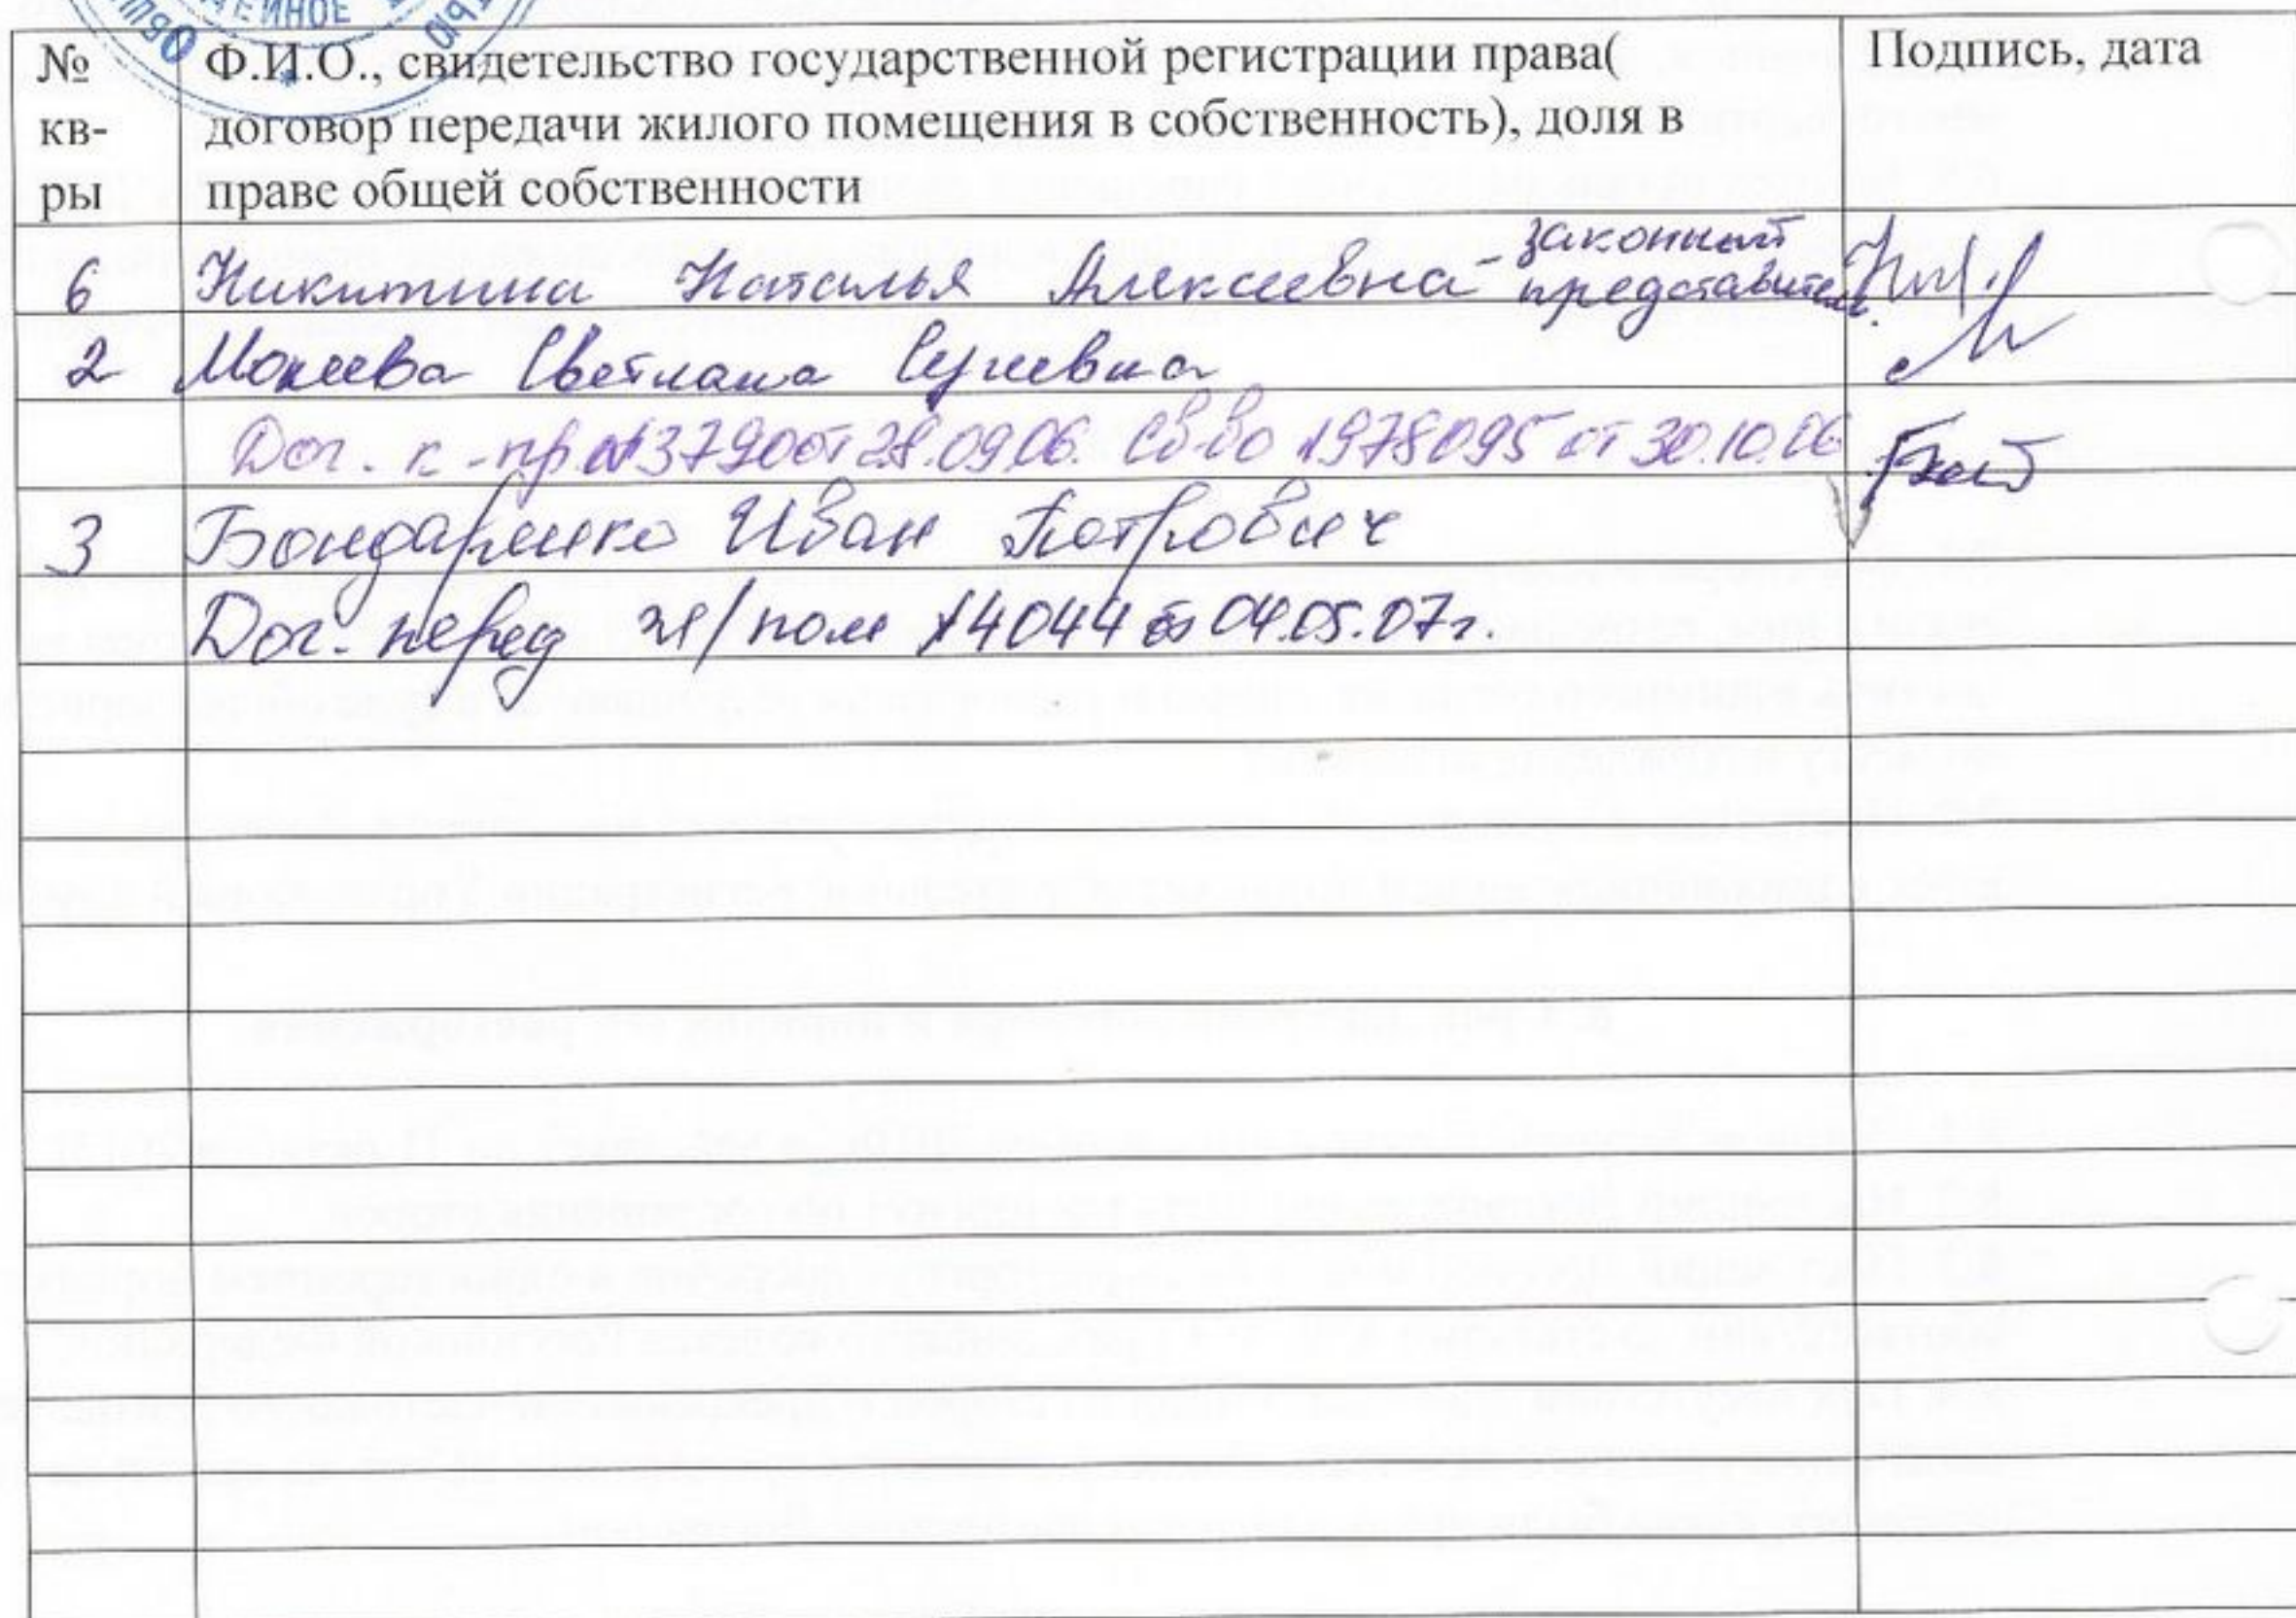 ЕЙНОЕ
№ Ф.И.О., свидетельство государственной регистрации права( Подпись, дата
кв- договор передачи жилого помещения в собственность), доля в
ры праве общей собственности
6 Никитина Наталья Алексеевна - законный
представитель.
2 Мокеева Светлана
Дог. к-пр. №3790 от 28.09.06. Св-во №978095 от 30.10.06
3 Бондаренко Иван Петрович
Дог. перед ж/пом №4044 от 04.05.07г.